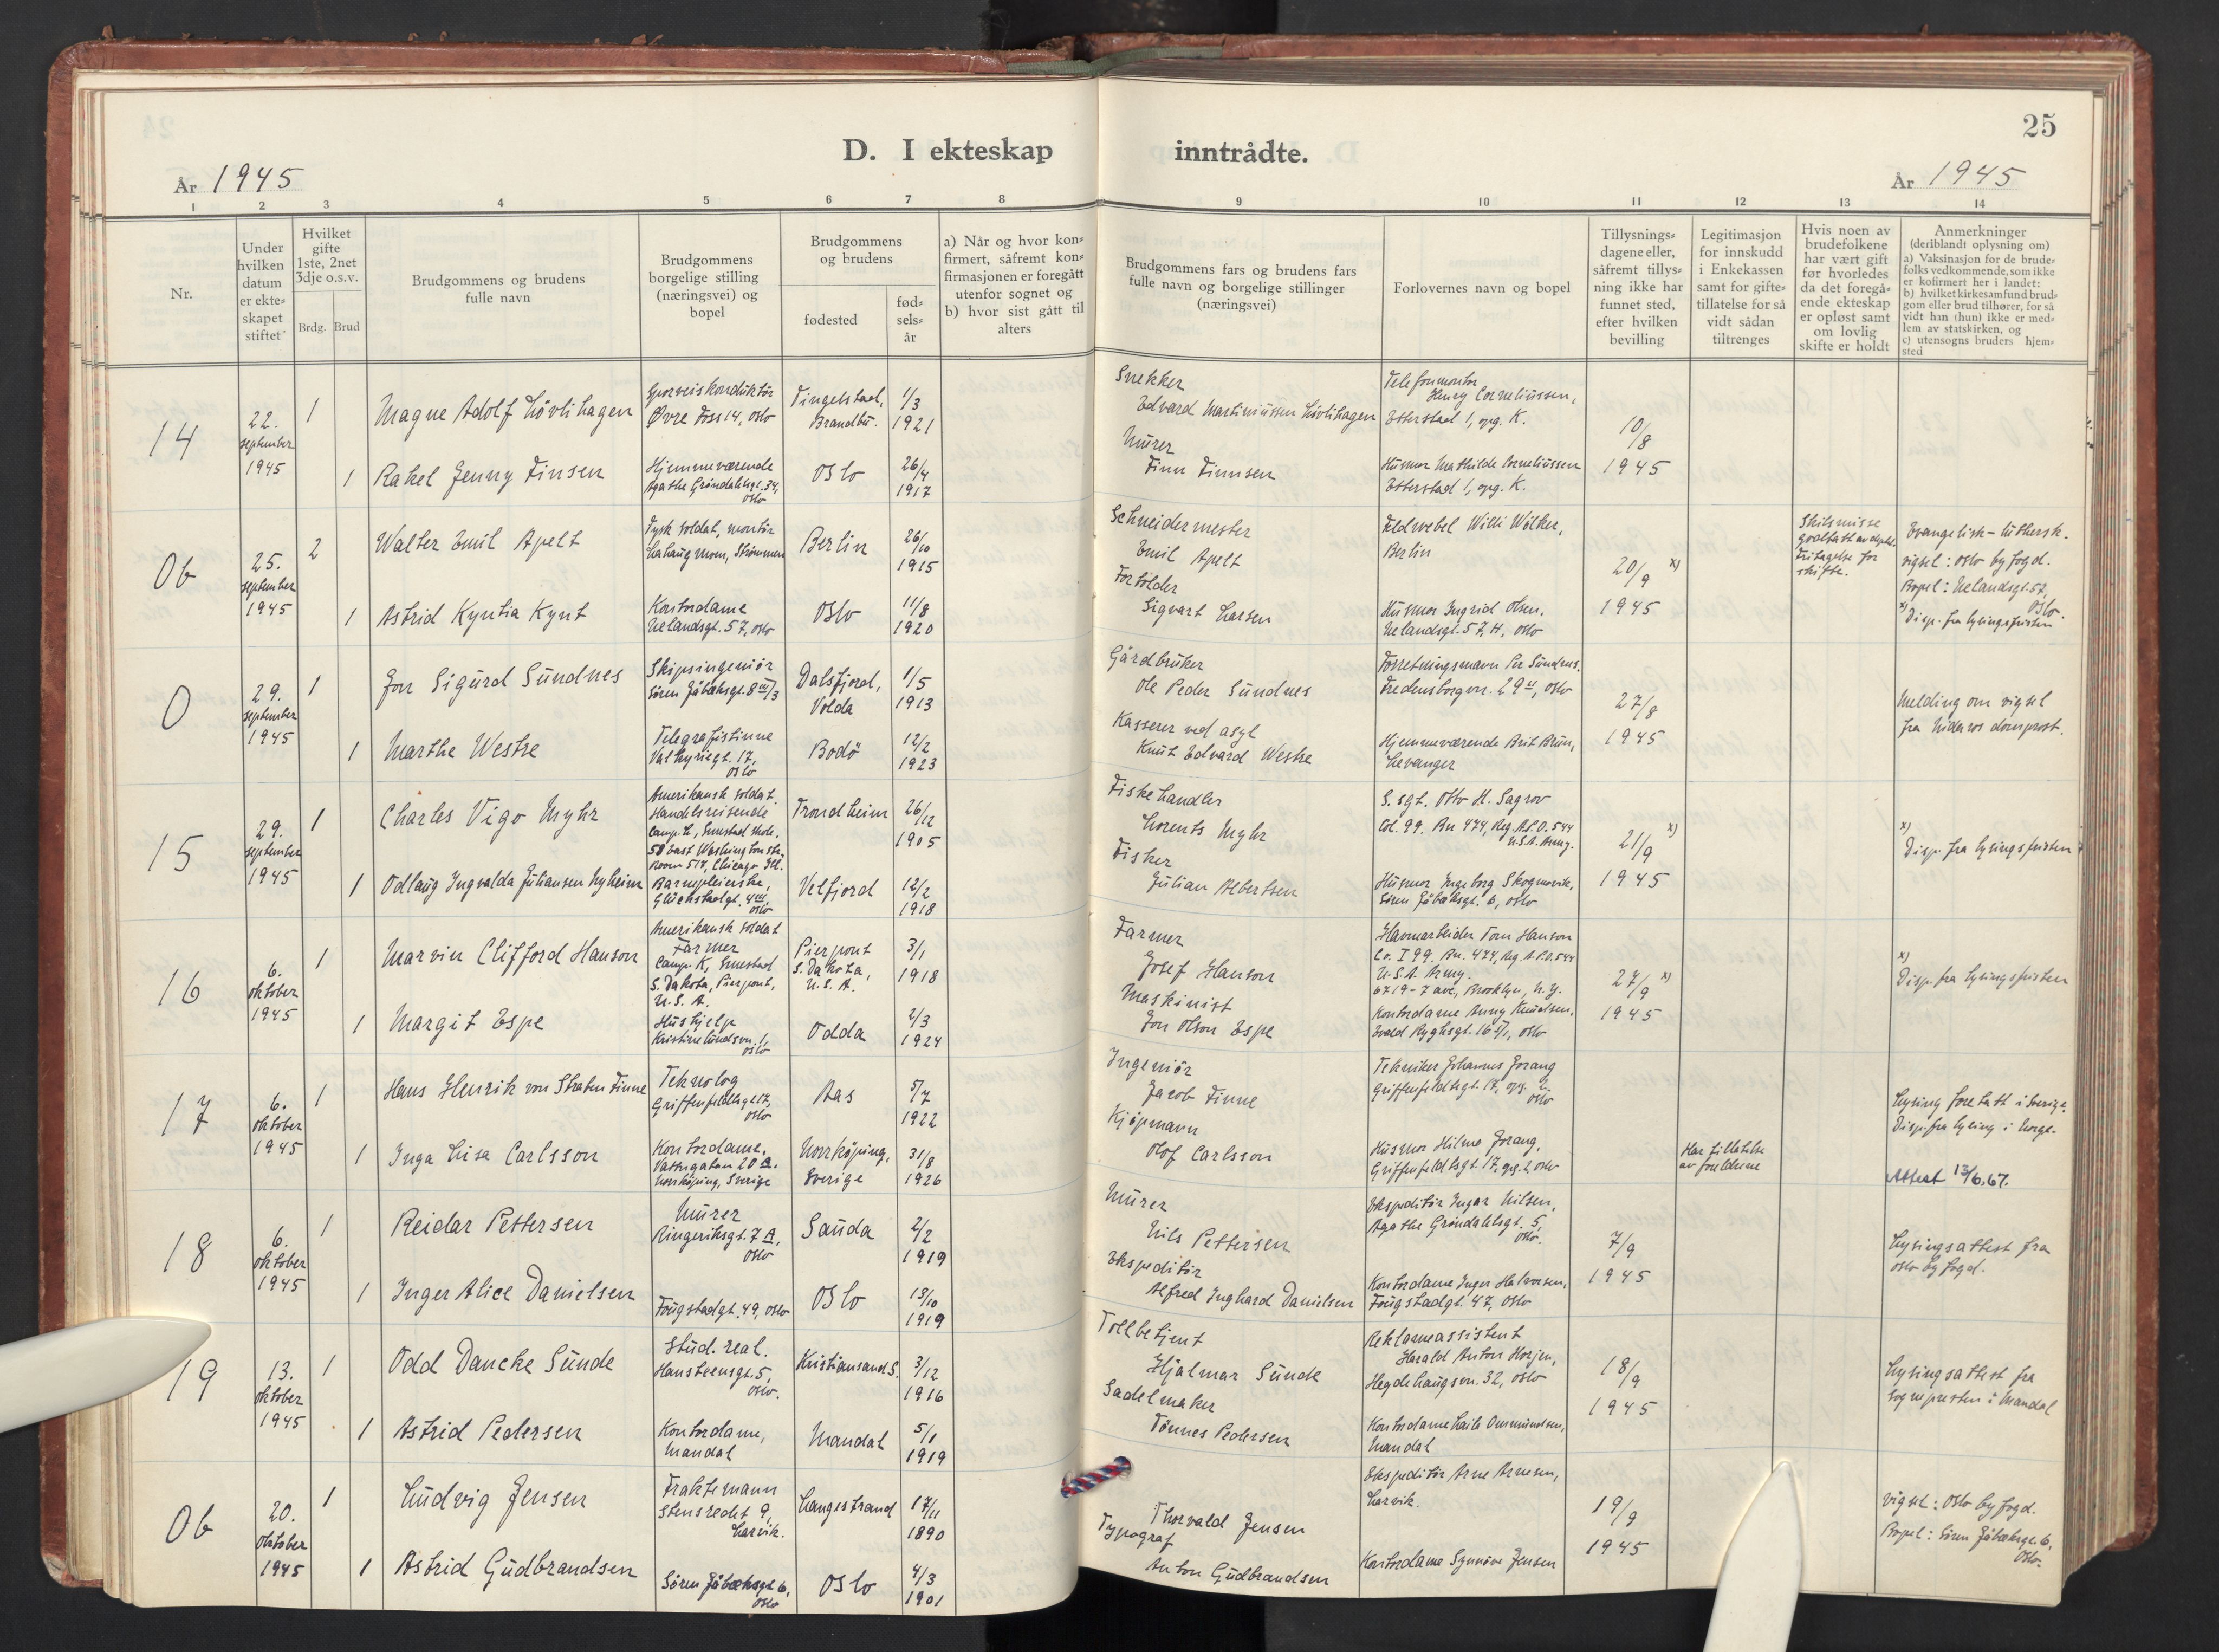 D. I ekteskap inntrådte.
25
År 1945
År 1945
1 2 3 4 5 6 7 8 9 10 11 12 13 14
Nr.
Under
hvilken
datum
er ekte-
skapet
stiftet
Hvilket
gifte
1ste, 2net
3dje o.s.v.
Brdg. Brud
Brudgommens og brudens
fulle navn
Brudgommens
borgelige stilling
(næringsvei) og
bopel
Brudgommens
og brudens
fødested
fød-
sels-
år
a) Når og hvor kon-
firmert, såfremt kon-
firmasjonen er foregått
utenfor sognet og
b) hvor sist gått til
alters
Brudgommens fars og brudens fars
fulle navn og borgelige stillinger
(næringsvei)
Forlovernes navn og bopel
Tillysnings-
dagene eller,
såfremt tillys-
ning ikke har
funnet sted,
efter hvilken
bevilling
Legitimasjon
for innskudd
i Enkekassen
samt for gifte-
tillatelse for så
vidt sådan
tiltrenges
Hvis noen av
brudefolkene
har vært gift
før hvorledes
da det foregå-
ende ekteskap
er opløst samt
om lovlig
skifte er holdt
Anmerkninger
(deriblandt oplysning om)
a) Vaksinasjon for de brude-
folks vedkommende, som ikke
er kofirmert her i landet:
b) hvilket kirkesamfund brud-
gom eller brud tilhører, for så
vidt han (hun) ikke er med-
lem av statskirken, og
c) utensogns bruders hjem-
sted
14
22.
september
1945
1
Magne Adolf Lövlihagen
Sporveiskonduktör
Øvre Foss 14, Oslo
Tingelstad,
Brandbu.
1/3
1921
Snekker
Edvard Martiniussen Lövlihagen
Telefonmontör
Henry Corneliussen,
Etterstad 1, opg. K.
10/8
1945
1
Rakel Jenny Finsen
Hjemmeværende
Agathe Gröndahlsgt. 34,
Oslo
Oslo
26/4
1917
Murer
Finn Finnsen
Husmor Mathilde Corneliussen
Etterstad 1, opg. K.
Ob
25.
september
1945
2
Walter Emil Apelt
Tysk soldat, montör
Strömmen
Berlin
26/10
1915
Schneidermester
Emil Apelt
Feldwebel Willi Wölker,
Berlin
20/9 x)
1945
Skilsmisse
godtatt av dept.
Fritagelse for
skifte.
Evangelisk-luthersk.
Vigsel: Oslo byfogd.
Bopel: Uelandsgt. 57,
Oslo.
x) Disp. fra lysingsfristen
1
Astrid Kyntia Kynt
Kontordame
Uelandsgt. 57, Oslo
Oslo
11/8
1920
Forsölder
Sigvart Larsen
Husmor Ingrid Olsen,
Uelandsgt. 57, H, Oslo
0
29.
september
1945
1
Jon Sigurd Sundnes
Skipsingeniör
Sören Jåbæksgt. 8 III/3
Dalsfjord,
Volda
1/5
1913
Gårdbruker
Ole Peder Sundnes
Forretningsmann Per Sundnes.
Fredensborgvn. 29 II, Oslo
27/8
1945
Melding om vigsel
fra Nidaros domprost.
1
Marthe Westre
Telegrafistinne
Valkyriegt. 17,
Oslo
Bodö
12/2
1923
Kasserer ved asyl
Knut Edvard Westre
Hjemmeværende Brit Brün,
Levanger
15
29.
september
1945
1
Charles Vigo Myhr
Amerikansk soldat.
Handelsreisende
Camp. K, Smestad skole.
58 East Washington str.
Room 517, Chicago Ill.
Trondheim
26/12
1905
Fiskehandler
Lorents Myhr
S. sgt. Otto H. Sagrov
Col. 99. Bn 474, Reg. A.P.O. 544
U.S.A. Army.
21/9 x)
1945
x)
Disp. fra lysingsfristen
1
Odlaug Ingvalda Juliansen Nyheim
Barnepleierske,
Glückstadgt. 4 III,
Oslo
Velfjord
12/2
1918
Fisker
Julian Albertsen
Husmor Ingeborg Skogmovik,
Sören Jåbæksgt. 6, Oslo
16
6.
oktober
1945
1
Marvin Clifford Hanson
Amerikansk soldat
Farmer
Camp. K, Smestad
S. Dakota, Pierpont,
U.S.A.
Pierpont
S. Dakota,
U.S.A.
3/1
1918
Farmer
Josef Hanson
Havnarbeider Tom Hanson
Co. I 99. Bn. 474, Reg. A.P.O. 544
U.S.A. Army.
6719 - 7 ave, Brooklyn, N.Y.
27/9 x)
1945
x)
Disp. fra lysingsfristen
1
Margit Espe
Hushjelp
Kristinelundsvn. 1,
Oslo
Odda
2/3
1924
Maskinist
Jon Olson Espe
Kontordame Anny Knudsen,
Evald Ryghsgt. 16 I/1, Oslo
17
6.
oktober
1945
1
Hans Henrik von Straten Finne
Teknolog
Griffenfeldtsgt. 17,
Oslo
Aas
5/7
1922
Ingeniör
Jacob Finne
Tekniker Johannes Jorang
Griffenfeldtsgt. 17, opg. 2.
Oslo
Lysing foretatt i Sverige.
Disp. fra lysing i Norge.
1
Inga Lisa Carlsson
Kontordame.
Vattugatan 20 A.
Norrköping, Sverige
Norrköping,
Sverige
31/8
1926
Kjöpmann
Olof Carlsson
Husmor Hilma Jorang,
Griffenfeldtsgt. 17, opg. 2, Oslo
Har tillatelse
av foreldrene
Attest 13/6.67.
18
6.
oktober
1945
1
Reidar Pettersen
Murer
Ringeriksgt. 7 A,
Oslo
Sauda
2/2
1919
Murer
Nils Pettersen
Ekspeditör Ingar Nilsen,
Agathe Gröndahlsgt. 5,
Oslo.
7/9
1945
Lysingsattest fra
Oslo byfogd.
1
Inger Alice Danielsen
Fougstadgt. 49, Oslo
Oslo
13/10
1919
Ekspeditör
Alfred Inghard Danielsen
Kontordame Inger Halvorsen,
Fougstadgt. 47, Oslo
19
13.
oktober
1945
1
Odd Dancke Sunde
Stud. real.
Hansteensgt. 5,
Oslo.
Kristiansand S.
3/12
1916
Tollbetjent
Hjalmar Sunde
Reklameassistent
Harald Anton Horjen,
Hegdehaugsvn. 32, Oslo
18/9
1945
Lysingsattest fra
Sognepresten i Mandal
1
Astrid Pedersen
Kontordame,
Mandal
Mandal
5/1
1919
Sadelmaker
Tönnes Pedersen
Kontordame Laila Ommundsen,
Mandal
Ob
20.
oktober
1945
1
Ludvig Jensen
Fraktemann
9,
Larvik.
Langestrand
17/11
1890
Thorvald Jensen
Ekspeditör Arne Arnesen,
Larvik.
19/9
1945
Vigsel: Oslo byfogd.
Bopel: Sören Jåbæksgt. 6,
Oslo.
1
Astrid Gudbrandsen
Sören Jåbæksgt. 6,
Oslo
Oslo
4/3
1901
Typograf
Anton Gudbrandsen
Kontordame Synnöve Jensen